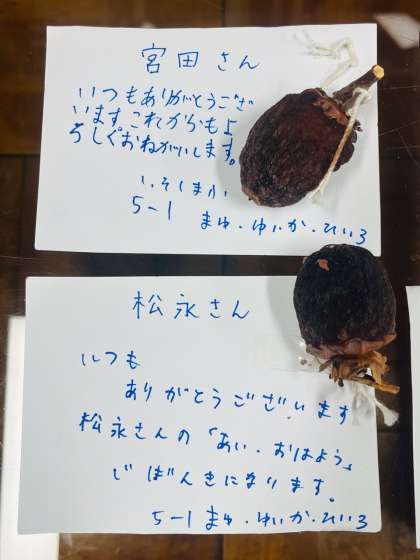 宮田さん
いつもありがとうござ
います。これからもよ
ろしくおねがいします。
5-1 まゆ・ゆいか・ひいろ
松永さん
いつも
ありがとうございます
松永さんの「あい、おはよう」
でげんきになります。
5-1 まゆ・ゆいか・ひいろ